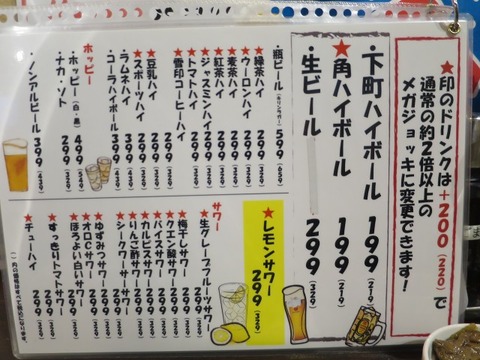 ★印のドリンクは+200(220)で
通常の約2倍以上の
メガジョッキに変更できます!
・下町ハイボール 199(219)
★角ハイボール 199(219)
・生ビール 299(329)
・瓶ビール 599
★緑茶ハイ 299(329)
★ウーロンハイ 299(329)
★麦茶ハイ 299(329)
★紅茶ハイ 299(329)
★ジャスミンハイ 299(329)
★トマトハイ 299(329)
★雪印コーヒーハイ
★豆乳ハイ 299(329)
★スポーツハイ 299(329)
・ラムネハイ 399(439)
・コーラハイボール 399(439)
ホッピー
・ホッピー(白・黒) 499(549)
・ナカ・ソト 299
・ノンアルビール 399(439)
★レモンサワー 299(329)
サワー
★生グレープフルーツサワー
★梅干しサワー 299(329)
★クエン酸サワー 299(329)
★バイスサワー 299(329)
★カルピスサワー 299(329)
★りんご酢サワー 299(329)
★シークワーサーサワー 299(329)
★ゆずみつサワー 299(329)
★オロCサワー 299(329)
★ほろよい白いサワー 299(329)
★すっきりトマトサワー 299(329)
★チューハイ 299(329)